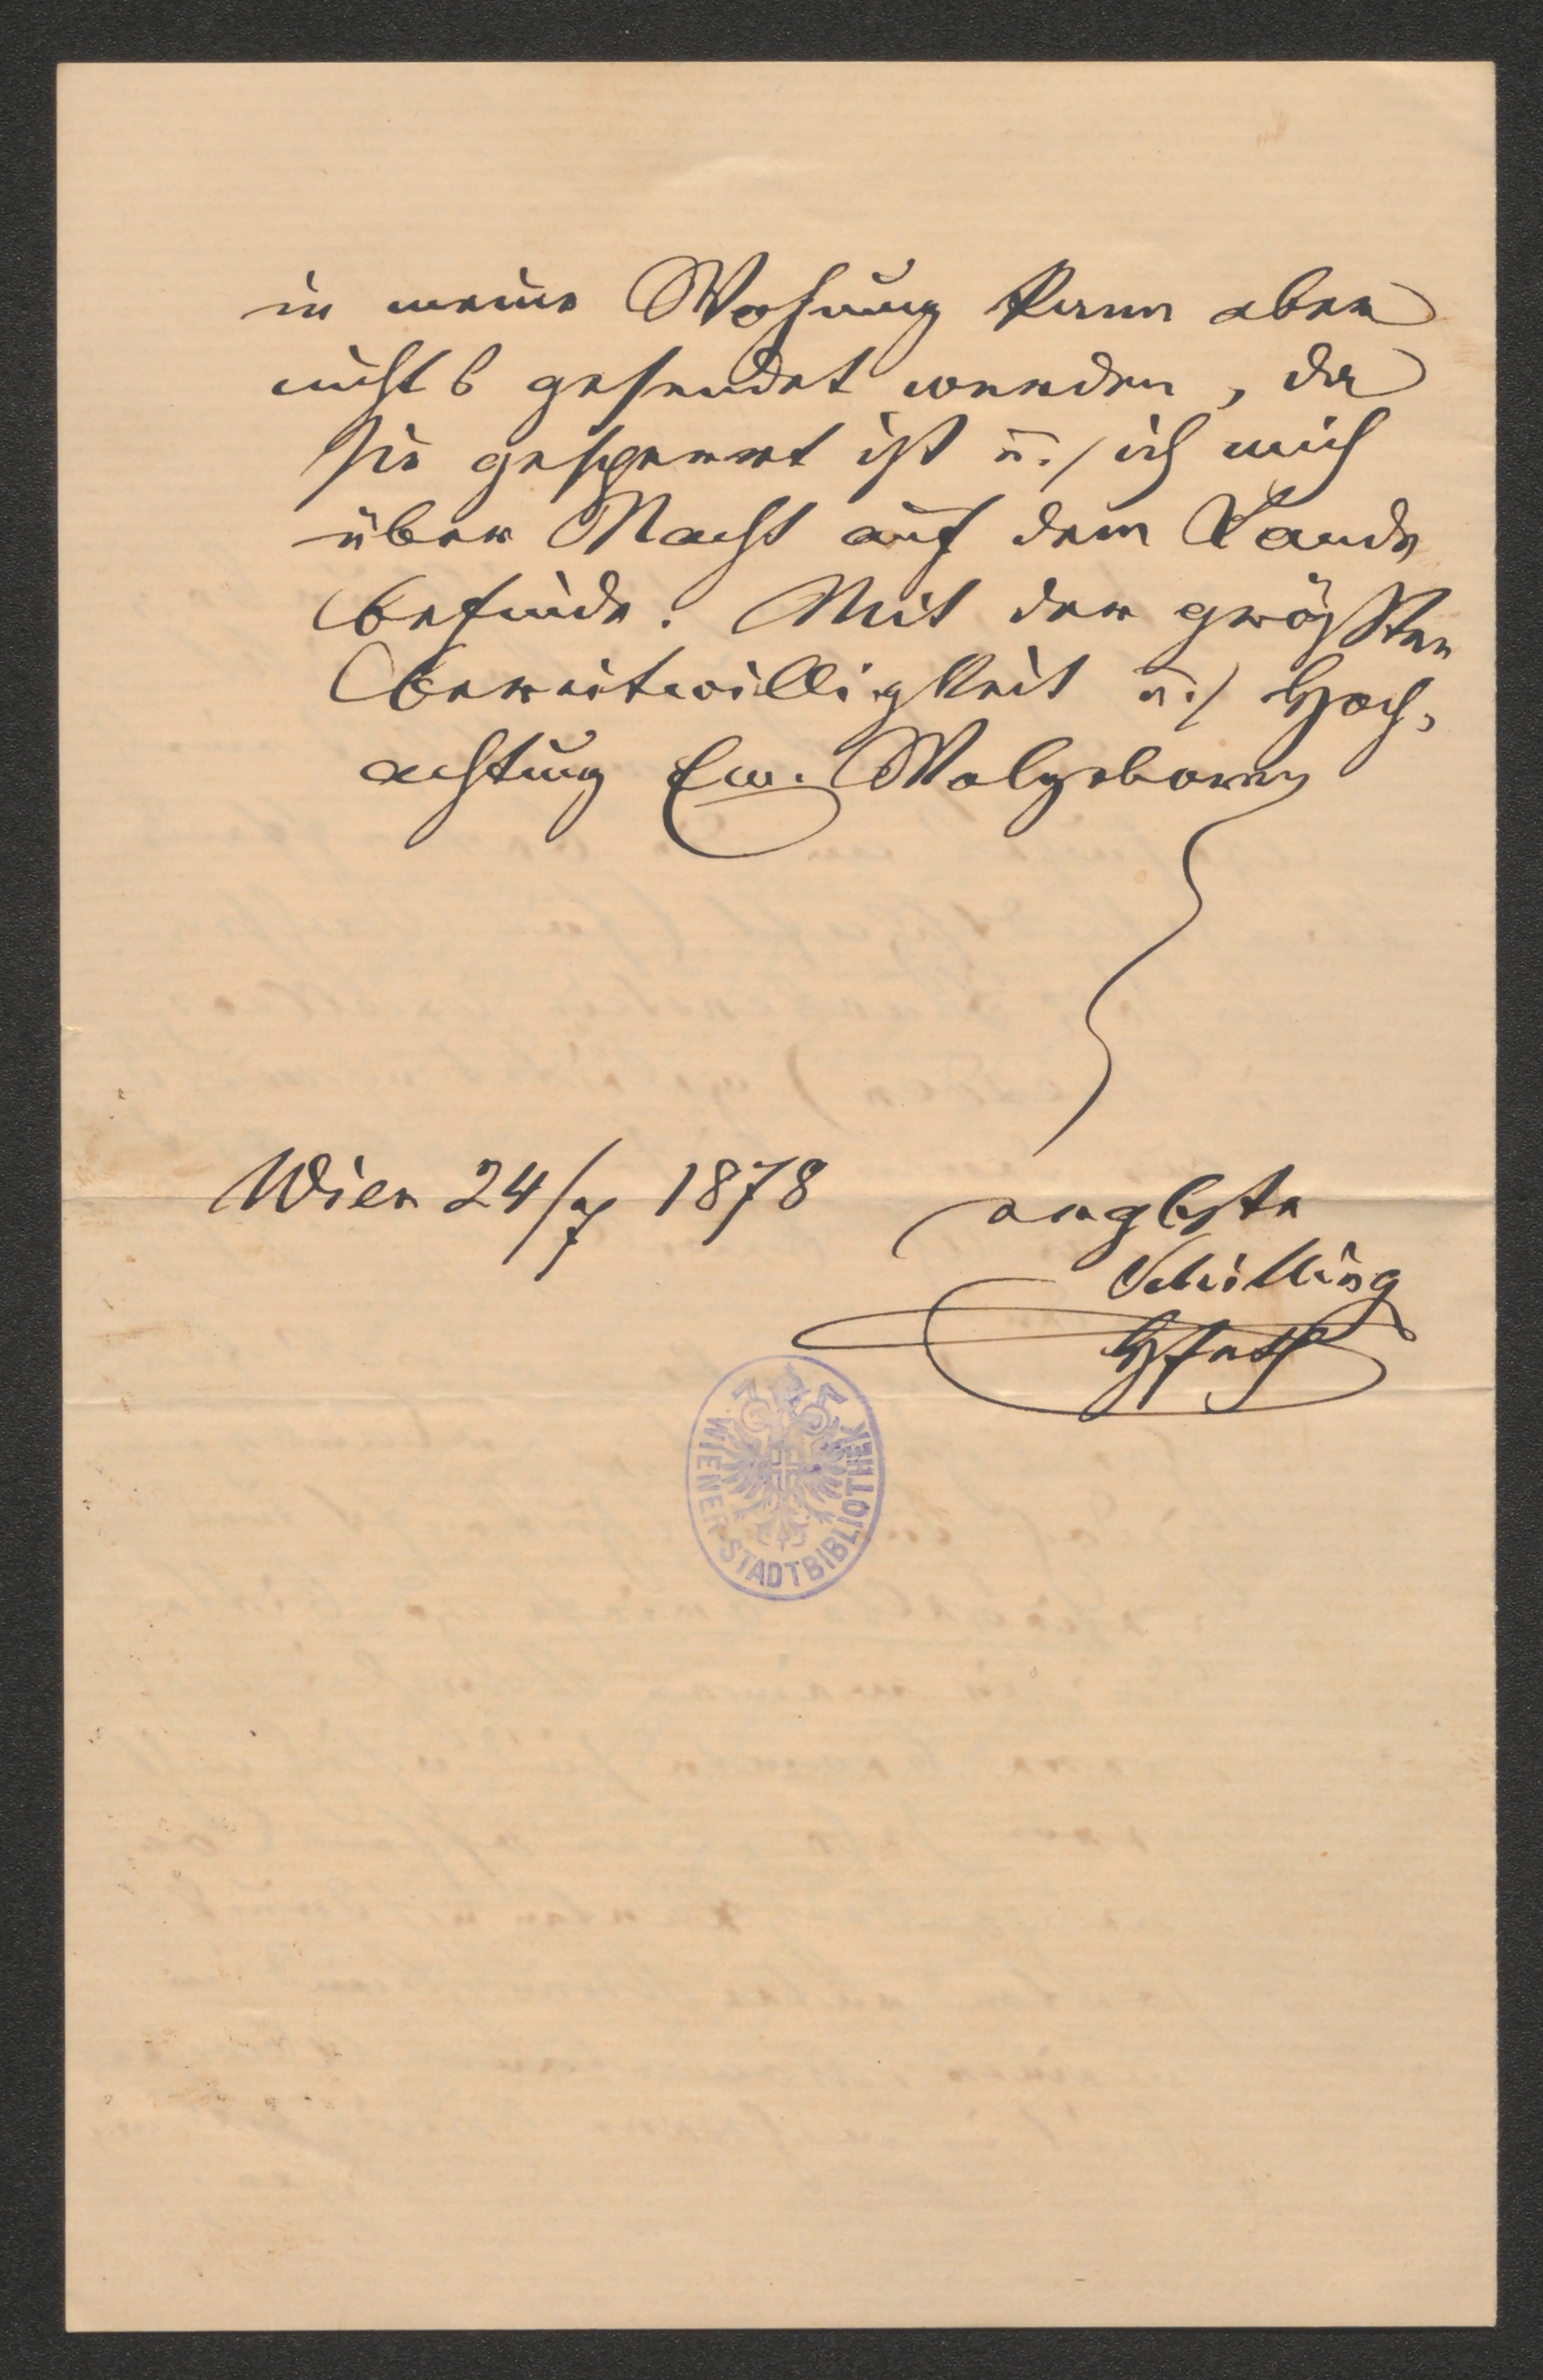 in meine Wohnung kann aber
nichts gesendet werden, da
sie gesperrt ist u. / ich mich
über Nacht auf dem Lande
befinde. Mit der größten
Bereitwilligkeit u. / Hoch-
achtung Ew. Wolgeboren
Wien 24/7 1878
ergbste
Schilling
WIENER STADTBIBLIOTHEK